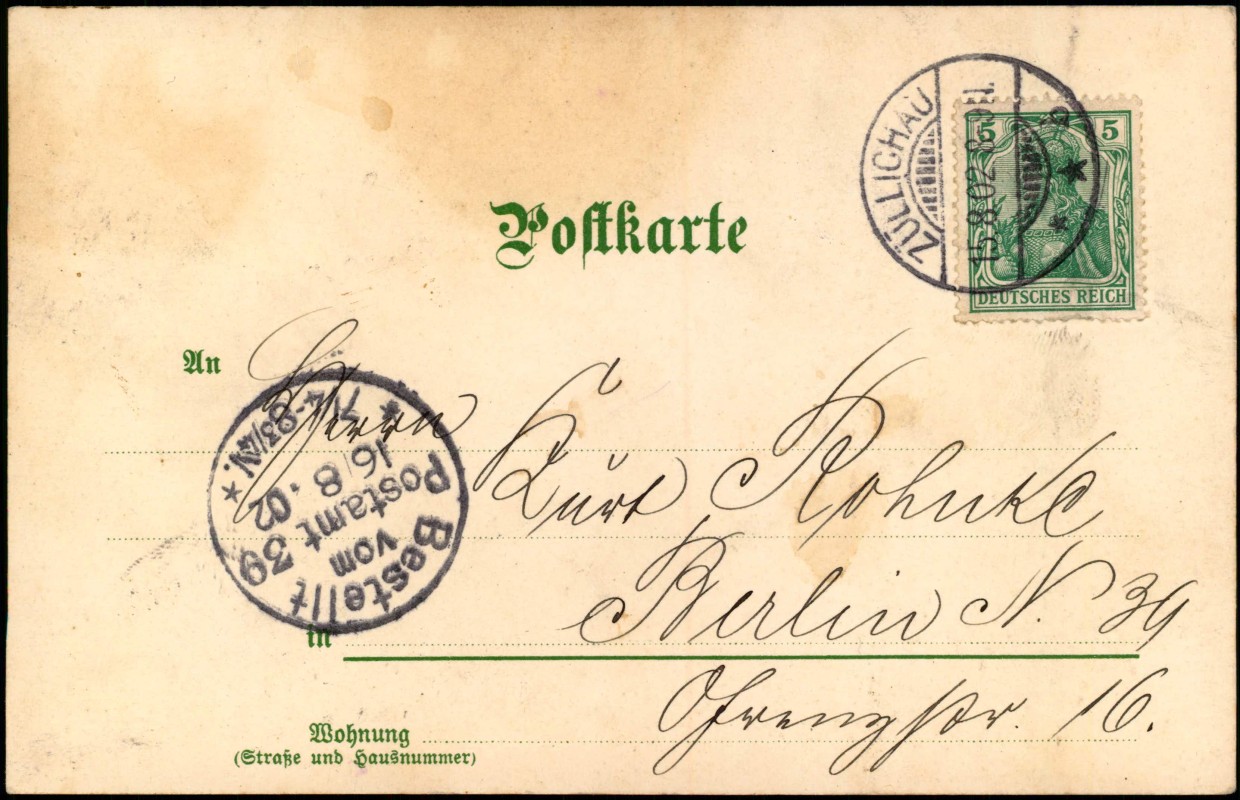 Postkarte
ZÜLLICHAU
15.8.02. 8-9N.
5 5
DEUTSCHES REICH
An
Herrn
Kurt Rohnke
Berlin N. 39
in
str. 16.
Wohnung
(Straße und Hausnummer)
Bestellt
vom
Postamt 39
16/8.02